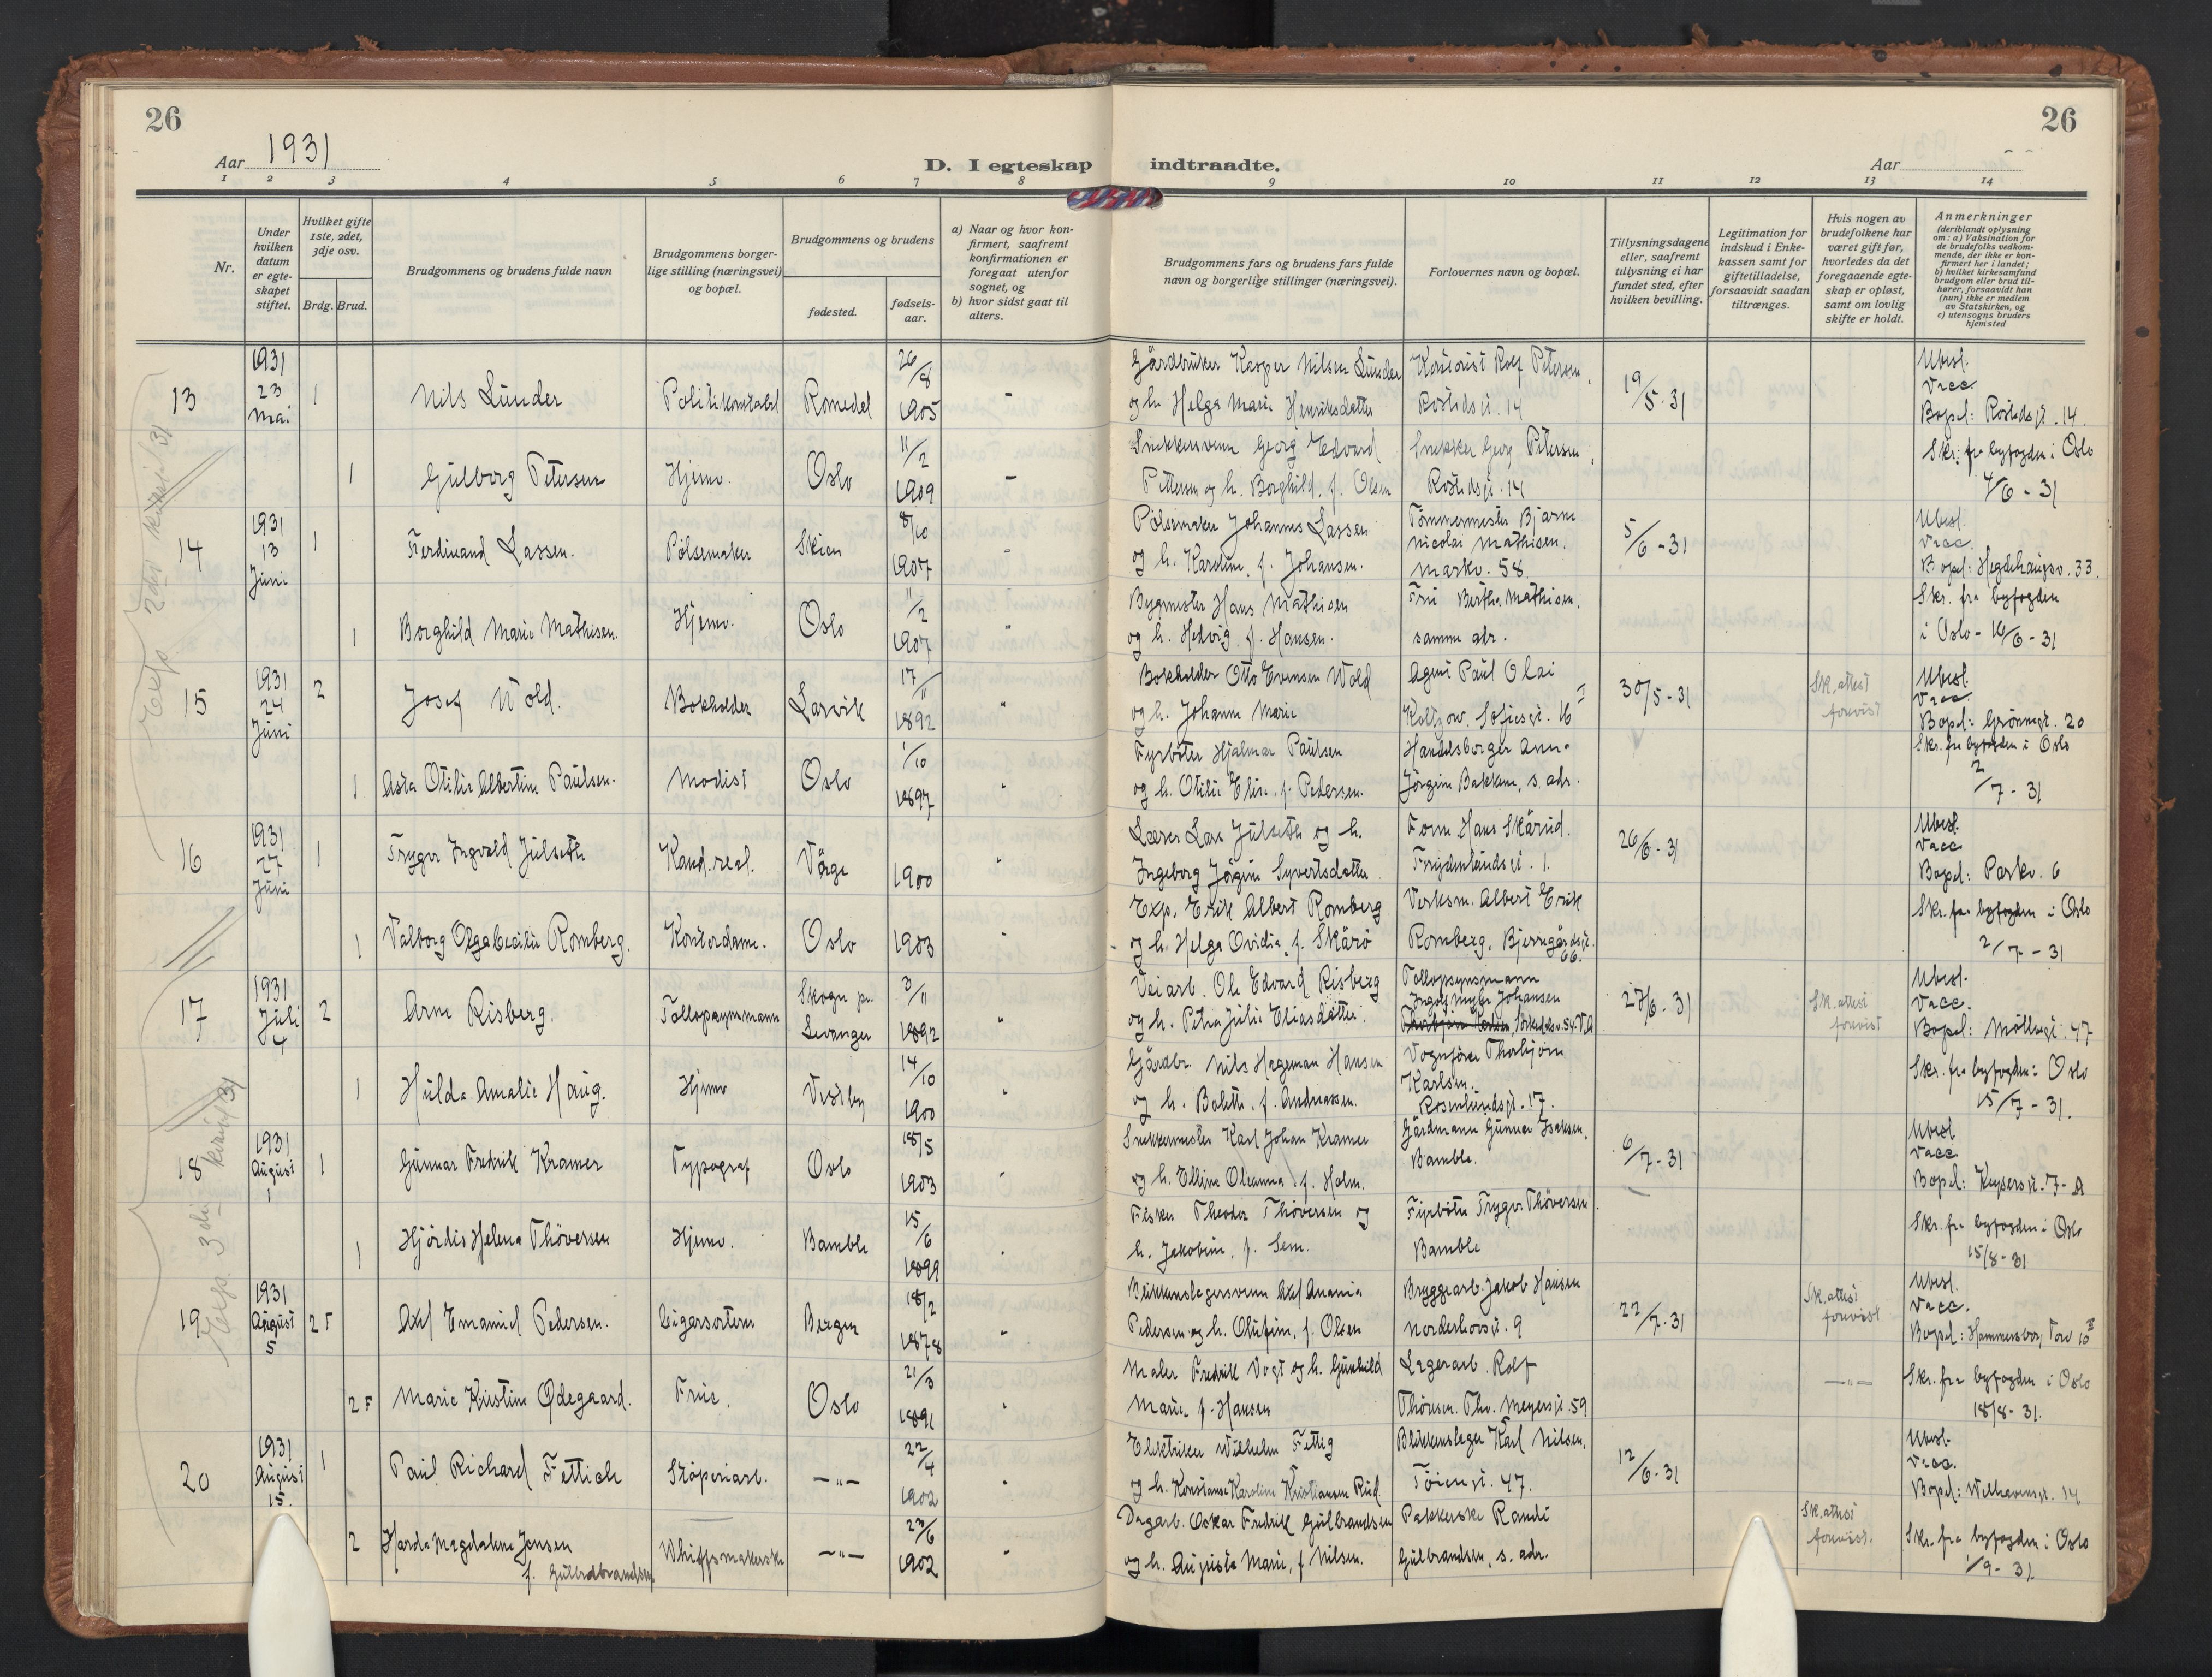 26
26
Aar 1931
D. I egteskap indtraadte.
Aar
1 2 3 4 5 6 7 8 9 10 11 12 13 14
Nr.
Under hvilken datum er egteskapet stiftet.
Hvilket gifte 1ste, 2det, 3dje osv.
Brdg. Brud.
Brudgommens og brudens fulde navn
Brudgommens borgerlige stilling (næringsvei) og bopæl.
Brudgommens og brudens
fødested.
fødselsaar.
a) Naar og hvor konfirmert, saafremt konfirmationen er foregaat utenfor sognet, og
b) hvor sidst gaat til alters.
Brudgommens fars og brudens fars fulde navn og borgerlige stillinger (næringsvei).
Forlovernes navn og bopæl.
Tillysningsdagene eller, saafremt tillysning ei har fundet sted, efter hvilken bevilling.
Legitimation for indskud i Enkekassen samt for giftetilladelse, forsaavidt saadan tiltrænges.
Hvis nogen av brudefolkene har været gift før, hvorledes da det foregaaende egteskap er opløst, samt om lovlig skifte er holdt.
Anmerkninger
(deriblandt oplysning om: a) Vaksination for de brudefolks vedkommende, der ikke er konfirmert her i landet;
b) hvilket kirkesamfund brudgom eller brud tilhører, forsaavidt han (hun) ikke er medlem av Statskirken, og
c) utensogns bruders hjemsted
13 1931 23 Mai 1 Nils Lunder Politikonstabel Romedal 26/8 1905 - Gårdbruker Kasper Nilsen Lunder og h. Helga Marie Henriksdatter Kontorist Rolf Petersen, Rostedsgt. 14 19/5-31 Ubesl. Vacc. Bopel: Rostedsgt. 14.
1 Gulborg Petersen Hjemv. Oslo 11/2 1909 - Snekkersvenn Georg Edvard Pettersen og h. Borghild, f. Olsen Snekker Georg Petersen, Rostedsgt. 14 Skr. fra byfogden i Oslo 4/6-31
14 1931 13 Juni 1 Ferdinand Lassen. Pølsemaker Skien 8/10 1907 " Pølsemaker Johannes Lassen og h. Karoline, f. Johansen. Tømmermester Bjarne Nicolai Mathisen. Markv. 58. 5/6-31 Ubesl. Vacc. Bopel: Hegdehaugsv. 33.
1 Borghild Marie Mathisen. Hjemv. Oslo 11/2 1907 " Bygmester Hans Mathisen og h. Hedvig, f. Hansen. Frue Bertha Mathisen, samme adr. Skr. fra byfogden i Oslo - 16/6-31
15 1931 24 Juni 2 Josef Wold. Bokholder Larvik 17/11 1892 " Bokholder Otto Evensen Wold og h. Johanne Marie Agent Paul Olai Koltzow. Sofiesgt. 16 II 30/5-31 Sk. attest forevist Ubesl. Vacc. Bopel: Grönnegt. 20
1 Asta Otilie Albertine Paulsen. Modist Oslo 1/10 1897 " Fyrböter Hjalmar Paulsen og h. Otilie Elise, f. Pedersen. Handelsborger Anne Jörgine Bakken, s. adr. Skr. fra byfogden i Oslo 2/7-31
16 1931 27 Juni 1 Trygve Ingvald Julseth Kand. real. Våge 1900 " Lærer Lars Julseth og h. Ingeborg Jörgine Syvertsdatter Form Hans Skårud. Frydenlundsgt. 1. 26/6-31 Ubesl. Vacc. Bopel: Parkv. 6
1 Valborg Olga Cecilie Romberg. Kontordame. Oslo 1903 " Exp. Erik Albert Romberg og h. Helga Ovidia, f. Skårö Verksm. Albert Erik Romberg, Bjerregårdsgt. 66. Skr. fra byfogden i Oslo 2/7-31
17 1931 Juli 4 2 Arne Risberg. Tollopsynsmann Skogn pr. Levanger 3/11 1892 " Veiarb. Ole Edvard Risberg og h. Petra Julie Eliasdatter. Tollopsynsmann Ingolf Myhr Johansen 27/6-31 Sk. attest forevist Ubesl. Vacc. Bopel: Möllergt. 47
1 Hulda Amalie Haug. Hjemv Vestby 14/10 1900 " Gårdbr. Nils Hageman Hansen og h. Bolette, f. Andreassen. Vognförer Thorbjörn Karlsen. Rosenlundsgt. 17. Skr. fra byfogden i Oslo 15/7-31.
18 1931 August 1 1 Gunnar Fredrik Kramer Typograf Oslo 18/5 1903 Snekkermester Karl Johan Kramer og h. Elline Oleanna f. Holm. Gårdmann Gunnar Isaksen, Bamble. 6/7-31 Ubesl Vacc Bopel: Keysersgt. 7-A
1 Hjördis Helena Thöversen Hjemv. Bamble 15/6 1899 " Fisker Theodor Thöversen og h. Jakobine, f. Sem. Fyrböter Trygve Thöversen Bamble Skr. fra byfogden i Oslo 15/8-31
19 1931 August 5 2 F Axel Emanuel Pedersen. Cigarsorterer Bergen 18/2 1878 " Blikkenslagersvenn Axel Anania Pedersen og h. Olufine, f. Olsen Bryggearb. Jakob Hansen Norderhovsgt. 9 22/7-31 Sk. attest forevist Ubesl. Vacc. Bopel: Hammersborg Torv 10 II
2 F Marie Kristine Ødegaard. Frue. Oslo 21/3 1891 " Maler Fredrik Vogt og h. Gunhild Marie f. Hansen Lagerarb. Rolf Thoresen. Thv. Meyersgt. 59 -"- Skr. fra byfogden i Oslo 18/8-31.
20 1931 August 15. 1 Paul Richard Fettich Støperiarb. -"- 22/4 1902 " Elektriker Wilhelm Fettig og h. Konstanse Karoline Kristiansen Rud Blikkenslager Karl Nilsen, Töiengt. 47. 12/6-31 Ubesl. Vacc. Bopel: Welhavensgt. 14
2 Harda Magdalena Jensen f. Gulbrandsen Whiffsmakerske -"- 23/6 1902 - Dagarb. Oskar Fredrik Gulbrandsen og h. Augusta Marie, f. Nilsen. Pakkerske Randi Gulbrandsen, s. adr. Sk. attest forevist. Skr. fra byfogden i Oslo 1/9-31